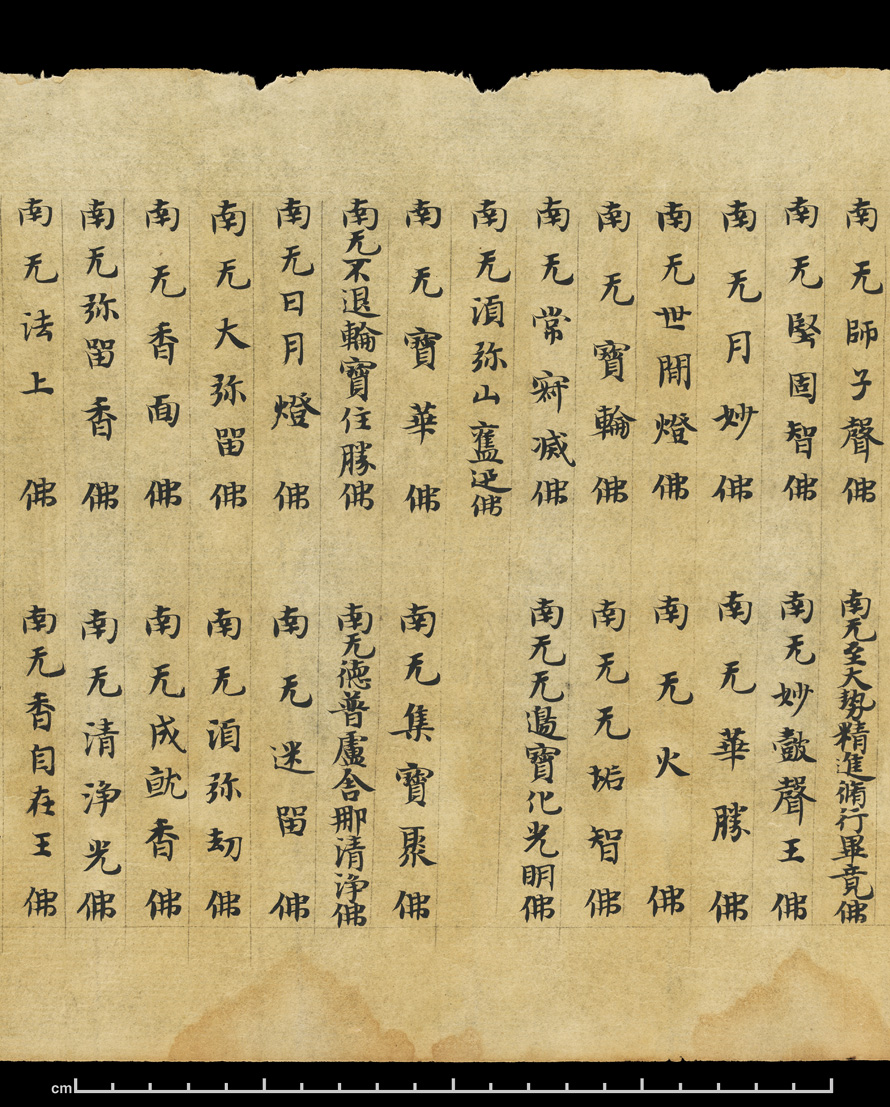 南无師子聲佛 南无至大势精進脩行畢竟佛
南无堅固智佛 南无妙皷聲王佛
南无月妙佛 南无華勝佛
南无世間燈佛 南无火佛
南无寶輪佛 南无无垢智佛
南无常寂滅佛 南无无邊寶化光明佛
南无湏弥山迊佛
南无寶華佛 南无集寶聚佛
南无不退輪寶住勝佛 南无德普盧舍那清淨佛
南无日月燈佛 南无迷留佛
南无大弥留佛 南无湏弥劫佛
南无香面佛 南无成就香佛
南无弥留香佛 南无清淨光佛
南无法上佛 南无香自在王佛
cm